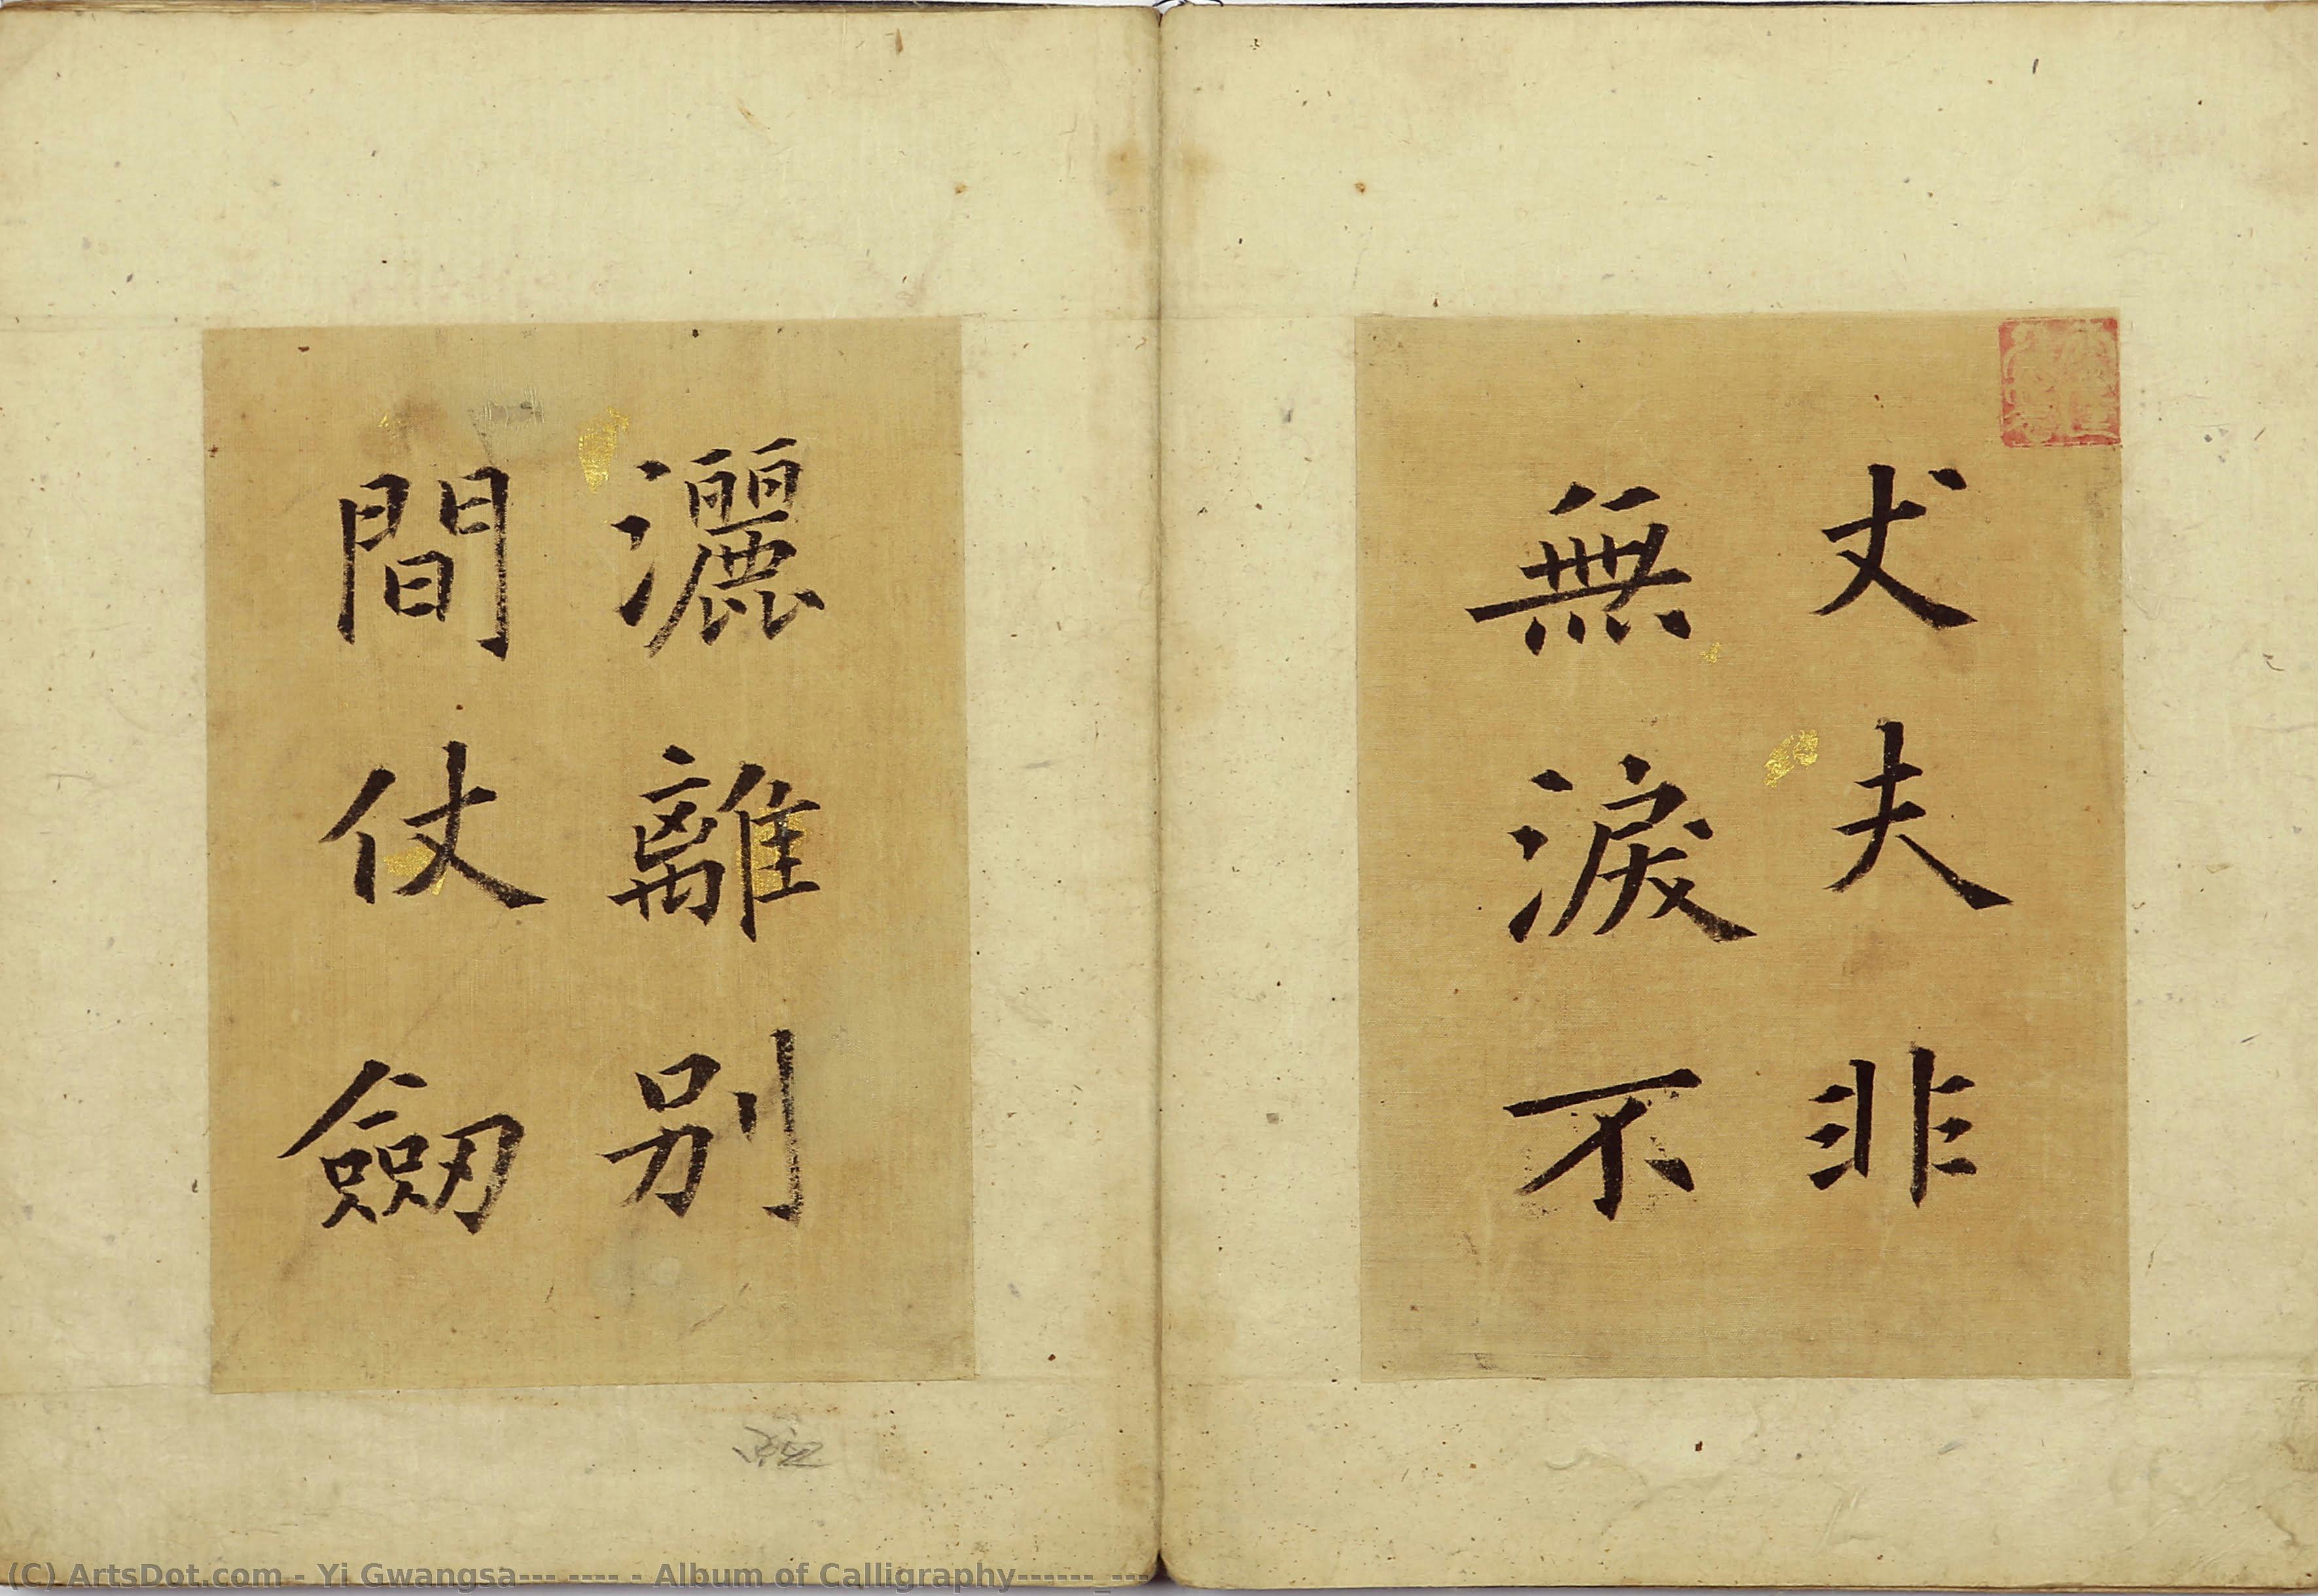 丈夫非
無淚不
灑離別
間仗劒
(C) ArtsDot.com - Yi Gwangsa--- ---- - Album of Calligraphy------_---